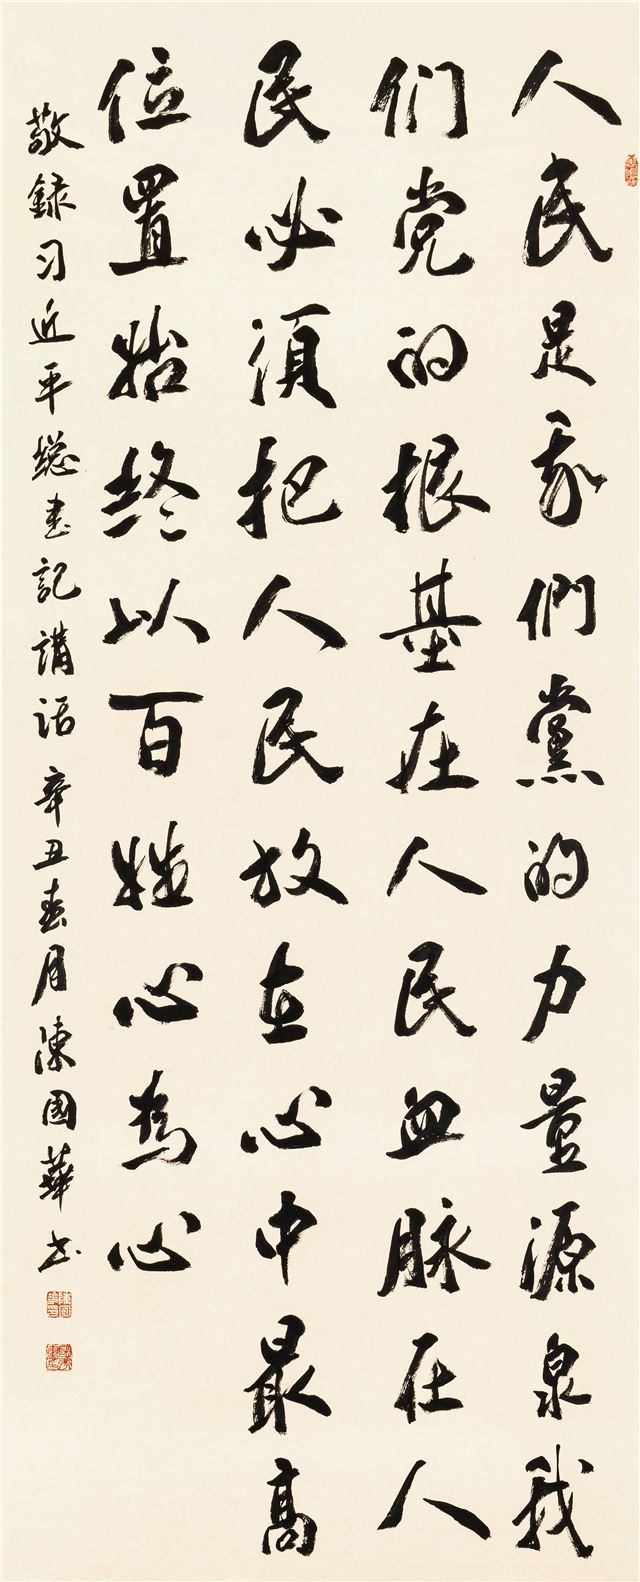 人民是我們黨的力量源泉我
们党的根基在人民血脉在人
民必須把人民放在心中最高
位置始终以百姓心為心
敬録习近平總书記講话辛丑春月陳國華书